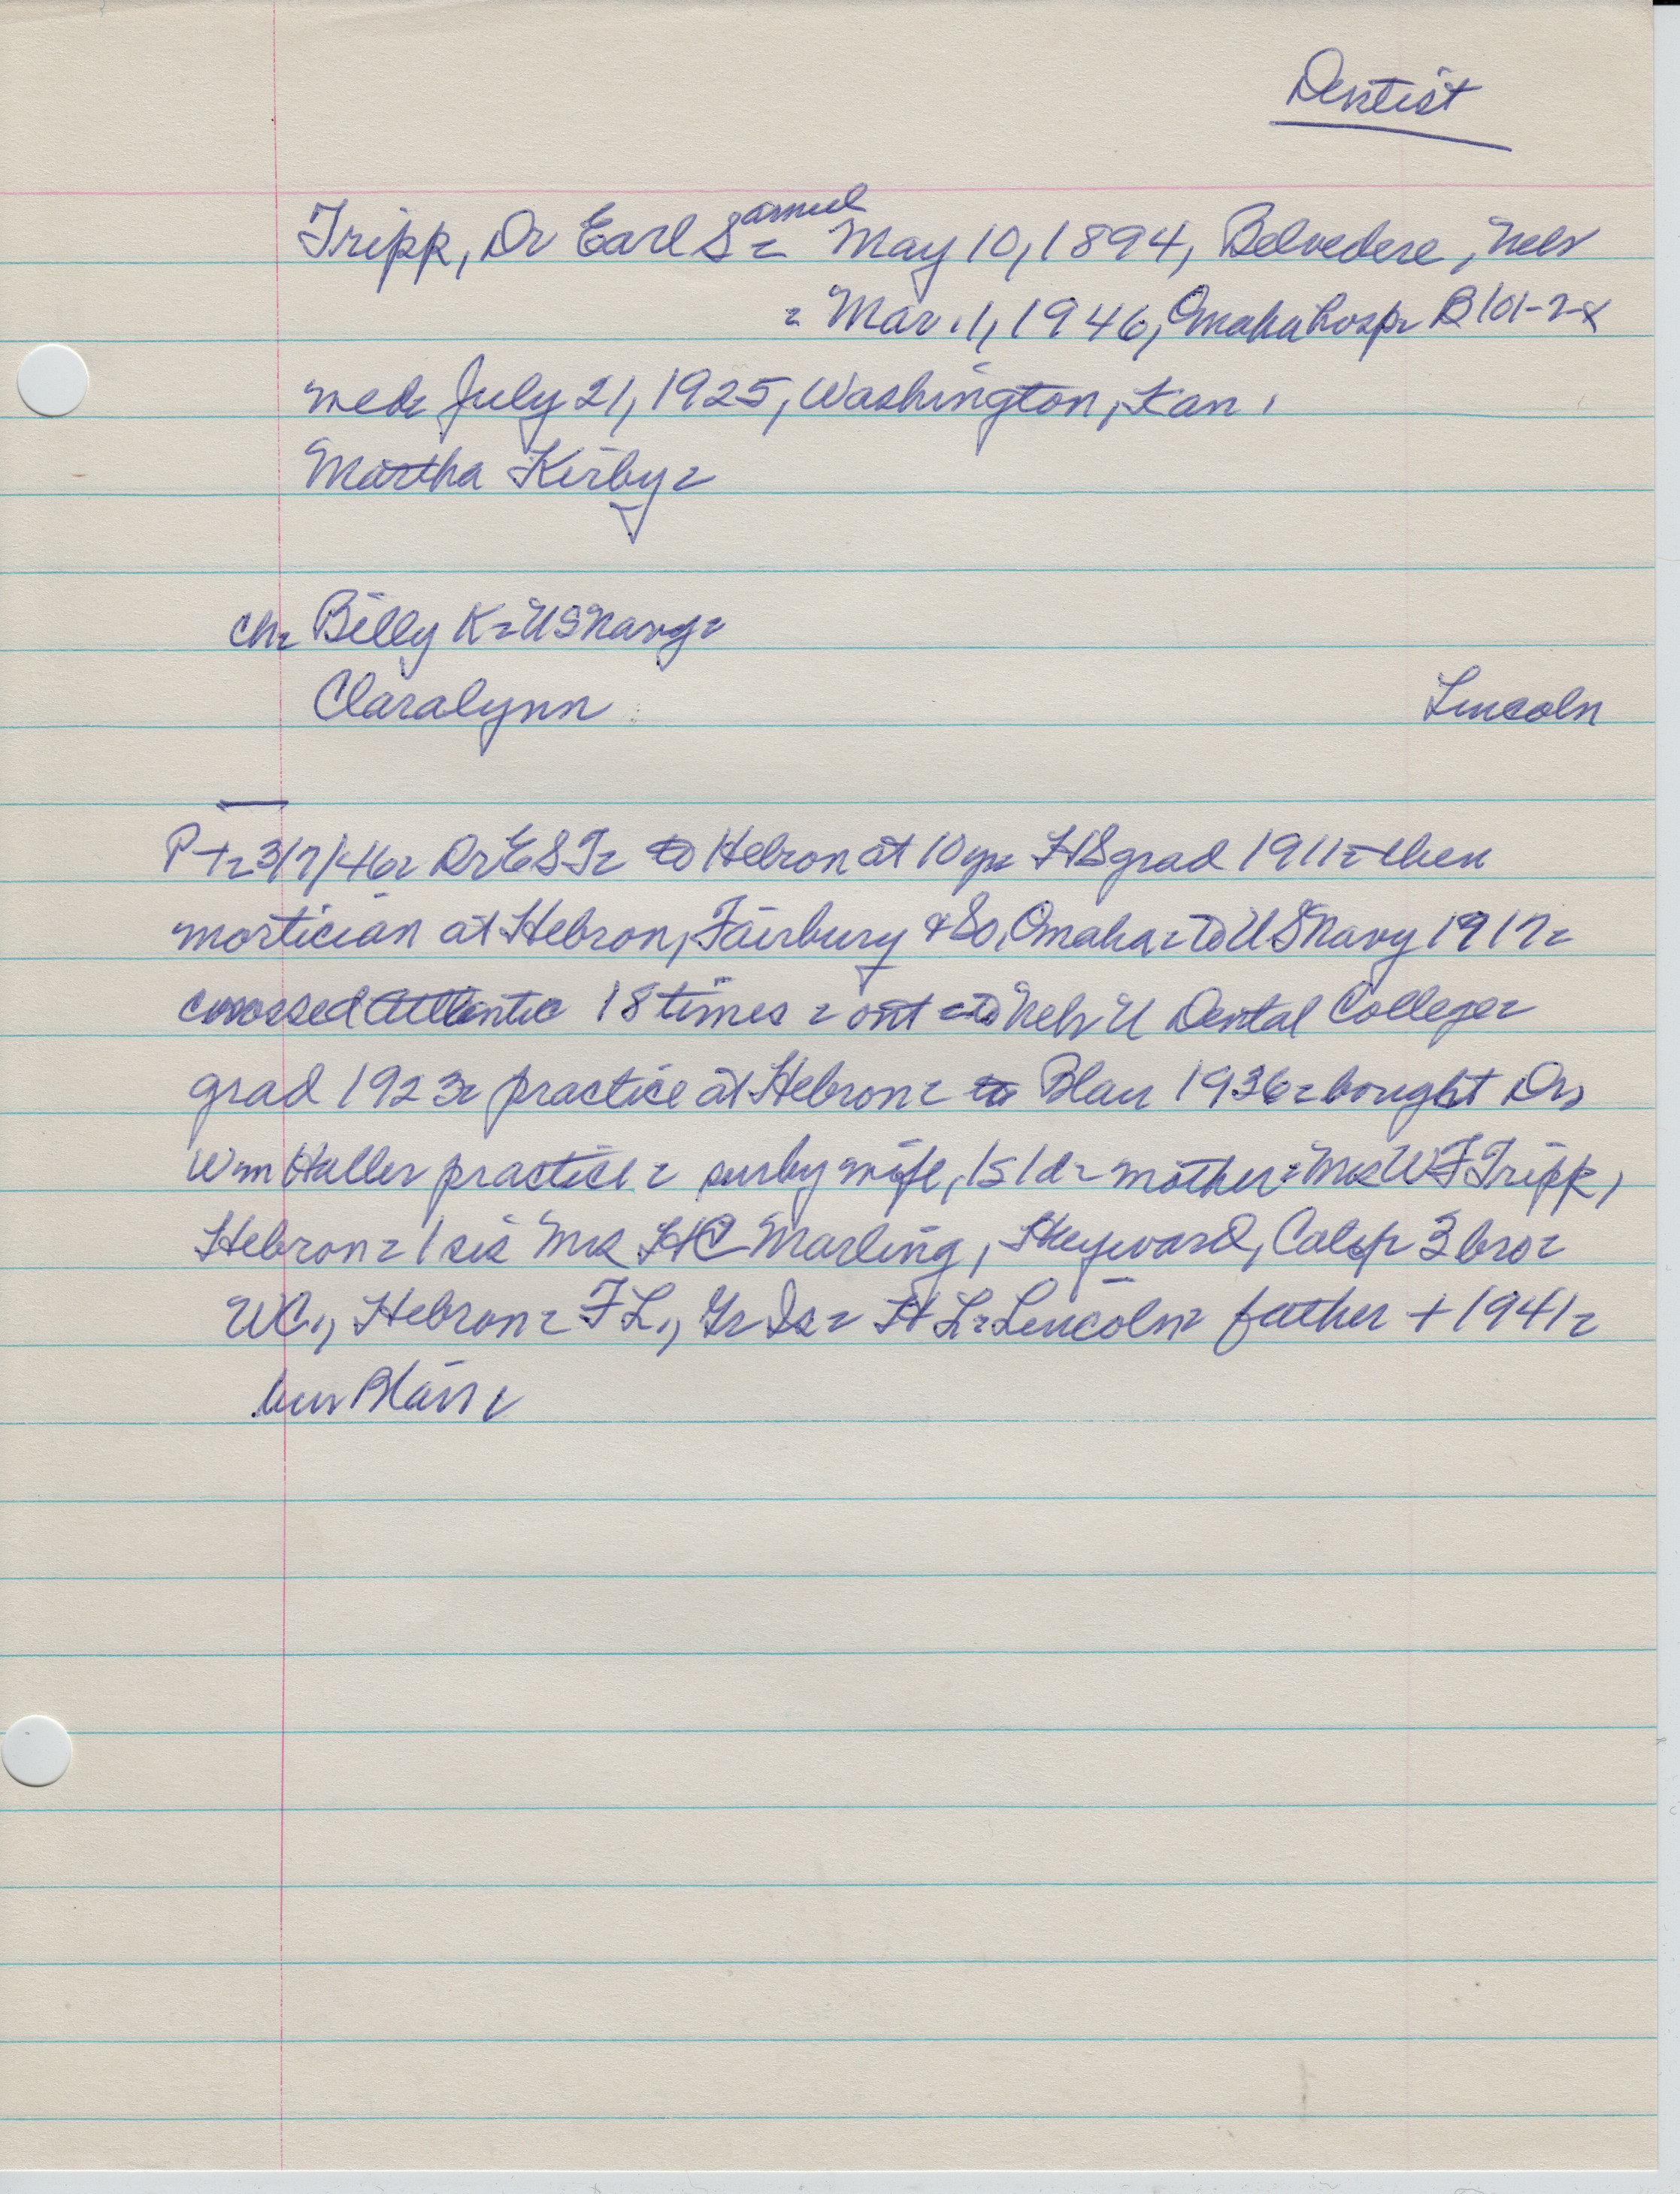 Dentist
Tripp, Dr Earl Samuel = May 10, 1894, Belvedere, Nebr
= Mar. 1, 1946, Omaha hosp= B 101-2-8
med= July 21, 1925, Washington, Kan.
Martha Kirby=
ch= Billy K= US Navy=
Claralynn
Lincoln
P T= 3/7/46= Dr E S T= to Hebron at 10 yr= HS grad 1911= then
mortician at Hebron, Fairbury & So. Omaha= to US Navy 1917=
crossed Atlantic 18 times = out = to Nebr U Dental College=
grad 1923= practice at Hebron= to Blair 1936= bought Dr
Wm Haller practice= sur by wife, 1s 1d= mother= Mrs W F Tripp,
Hebron= 1 sis Mrs H C Marling, Heyward, Calif= 3 bro=
W C., Hebron= F L., Gr Is= H L= Lincoln= father + 1941=
bur Blair=